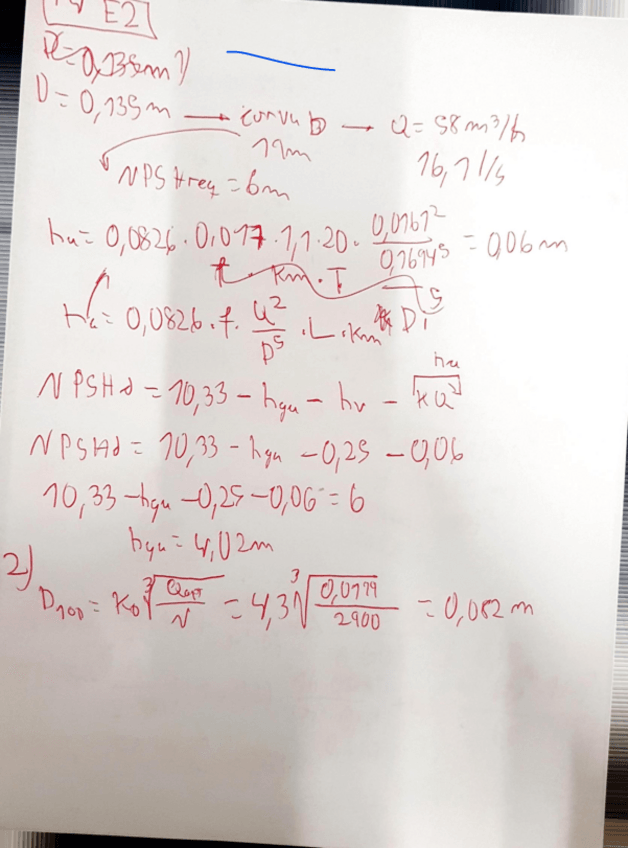 E2
D = 0,135m → curva B → Q = 58 m³/h
11m
16,1 l/s
NPSHreq = 6m
ha = 0,0826 · 0,017 · 1,1 · 20 · 0,0161² / 0,1694⁵ = 0,06 m
f Km · T
ha = 0,0826 · f · Q² / D⁵ · L · Km
ha
NPSHd = 10,33 - hga - hv - KQ²
NPSHd = 10,33 - hga - 0,25 - 0,06
10,33 - hga - 0,25 - 0,06 = 6
hga = 4,02m
2)
D100 = K0 ∛(Qopt / N) = 4,3 ∛(0,0199 / 2900) = 0,082 m